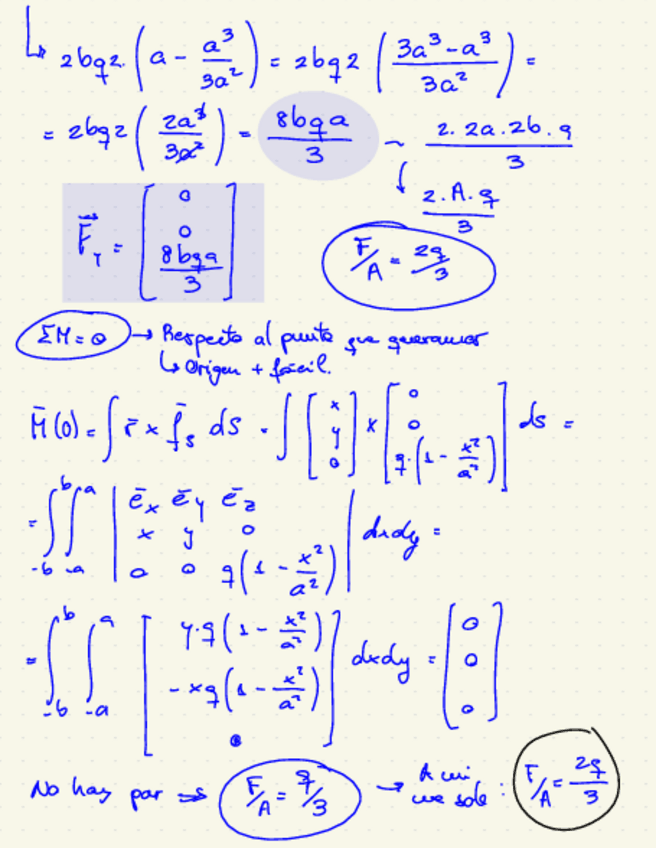 ↳ 2bq2·(a - a³/3a²) = 2bq2 (3a³-a³/3a²) =
= 2bq2 (2a³/3a²) = 8bqa/3 ~ 2·2a·2b·q/3
↓ 2·A·q/3
F⃗_T = [0 0 8bqa/3]
F/A = 2q/3
ΣM=0 → Respecto al punto que queramos
↳ Origen + fácil.
M̄(0) = ∫ r̄ × f̄_s ds = ∫ [x y 0] × [0 0 q·(1 - x²/a²)] ds =
= ∫_{-b}^{b} ∫_{-a}^{a} | ē_x ē_y ē_z
x y 0
0 0 q(1 - x²/a²) | dxdy =
= ∫_{-b}^{b} ∫_{-a}^{a} [y·q(1 - x²/a²) -xq(1 - x²/a²) 0] dxdy = [0 0 0]
No hay par ⇒ F/A = q/3 → A mi me sale : F/A = 2q/3